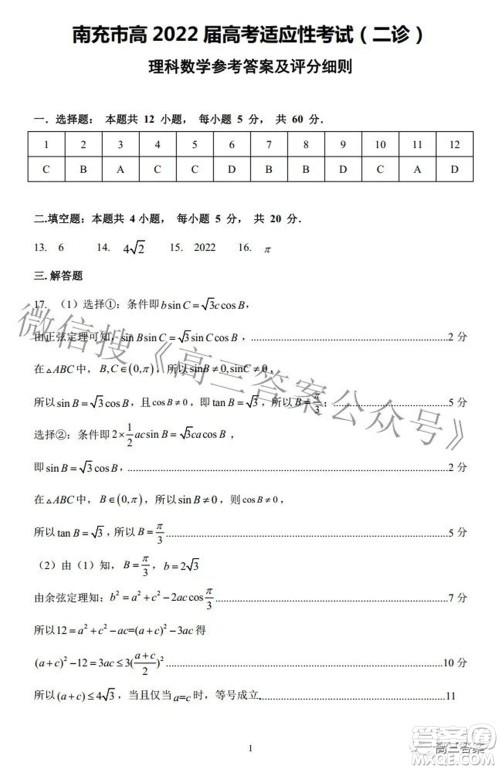 南充市高 2022 届高考适应性考试（二诊）
理科数学参考答案及评分细则
一．选择题： 本题共 12 小题， 每小题 5 分， 共 60 分．
1 2 3 4 5 6 7 8 9 10 11 12
C B A C D A B D A C B C
二.填空题：本题共 4 小题， 每小题 5 分， 共 20 分．
13. 6 14. 4√2 15. 2022 16. π
三. 解答题
17. （1）选择①：条件即 b sin C = √3 c cos B，
由正弦定理可知，sin B sin C = √3 sin C cos B ……2 分
在△ABC 中， B,C∈(0,π)，所以 sin B ≠ 0, sin C ≠ 0，
所以 sin B = √3 cos B，且 cos B ≠ 0，即 tan B = √3，所以 B = π/3；……5 分
选择②：条件即 2×1/2 ac sin B = √3 ca cos B，
即 sin B = √3 cos B，
在△ABC 中， B∈(0,π)，所以 sin B ≠ 0，则 cos B ≠ 0，
所以 tan B = √3，所以 B = π/3 ……5 分
（2）由（1）知， B = π/3， b = 2√3
由余弦定理知：b² = a² + c² − 2ac cos π/3 ……7 分
所以 12 = a² + c² − ac = (a+c)² − 3ac 得
(a+c)² − 12 = 3ac ≤ 3((a+c)/2)² ……10 分
所以 (a+c) ≤ 4√3 ，当且仅当 a=c 时，等号成立……11
1
微信搜《高三答案公众号》
高三答案
答案圈
MXQE.COM